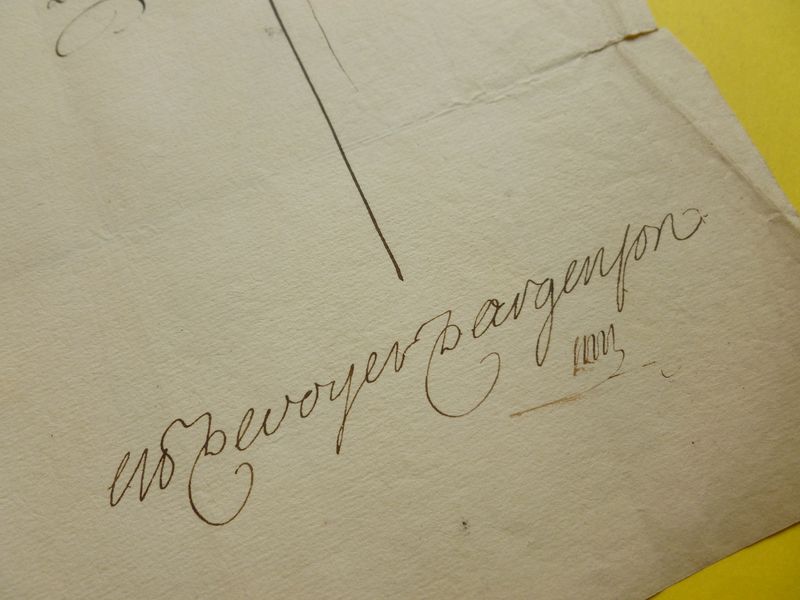 de voyer dargenson